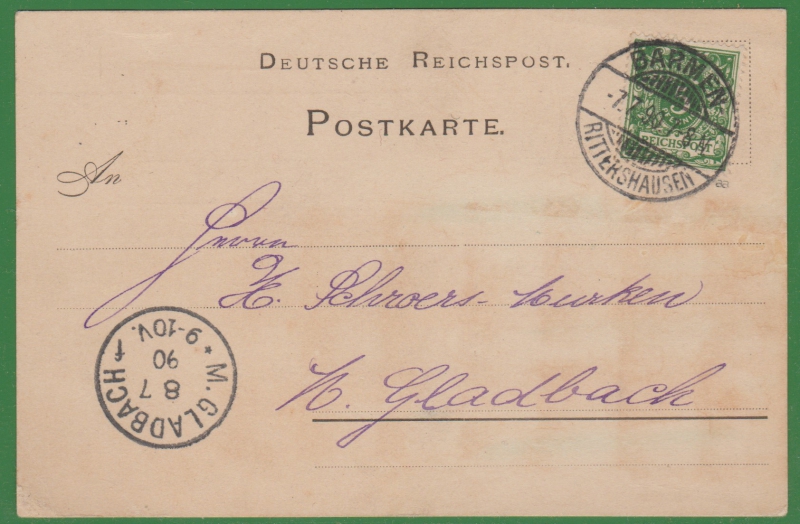 DEUTSCHE REICHSPOST.
POSTKARTE.
BARMEN
-7.7.90
RITTERSHAUSEN
REICHSPOST
An
Herrn
H. Schroers-Murken
M. Gladbach
M. GLADBACH
8 7
90
* 9-10V. f